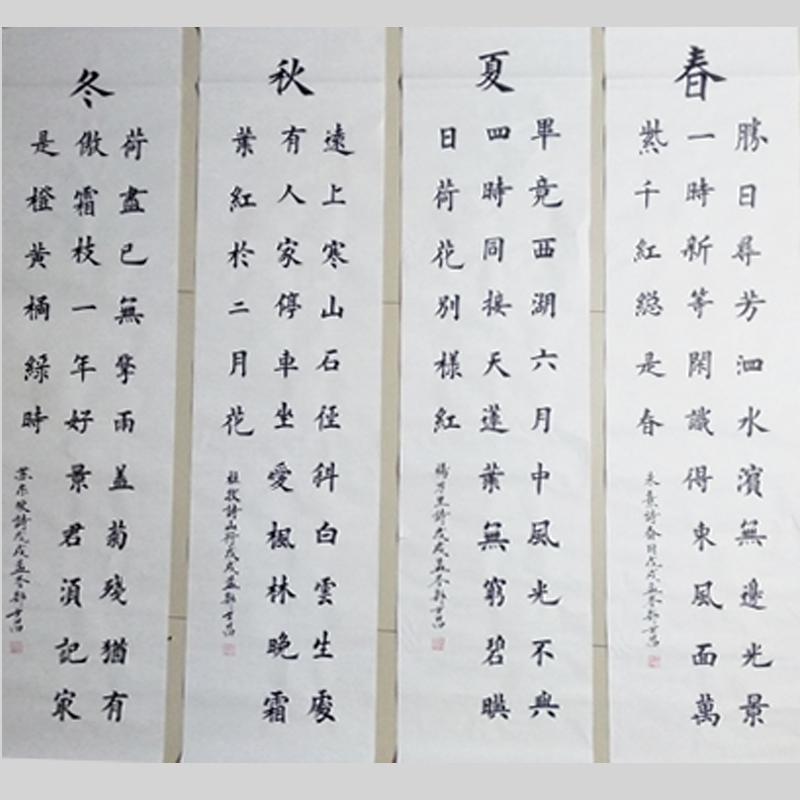 春
勝日尋芳泗水濱無邊光景
一時新等閑識得東風面萬
紫千紅緫是春
朱熹詩春日戊戌孟冬
夏
畢竟西湖六月中風光不與
四時同接天蓮葉無窮碧暎
日荷花別樣紅
楊万里詩戊戌孟冬
秋
遠上寒山石徑斜白雲生處
有人家停車坐愛楓林晚霜
葉紅於二月花
杜牧詩山行戊戌孟
冬
荷盡已無擎雨盖菊殘猶有
傲霜枝一年好景君須記冣
是橙黃橘綠時
苏东坡詩戊戌孟冬